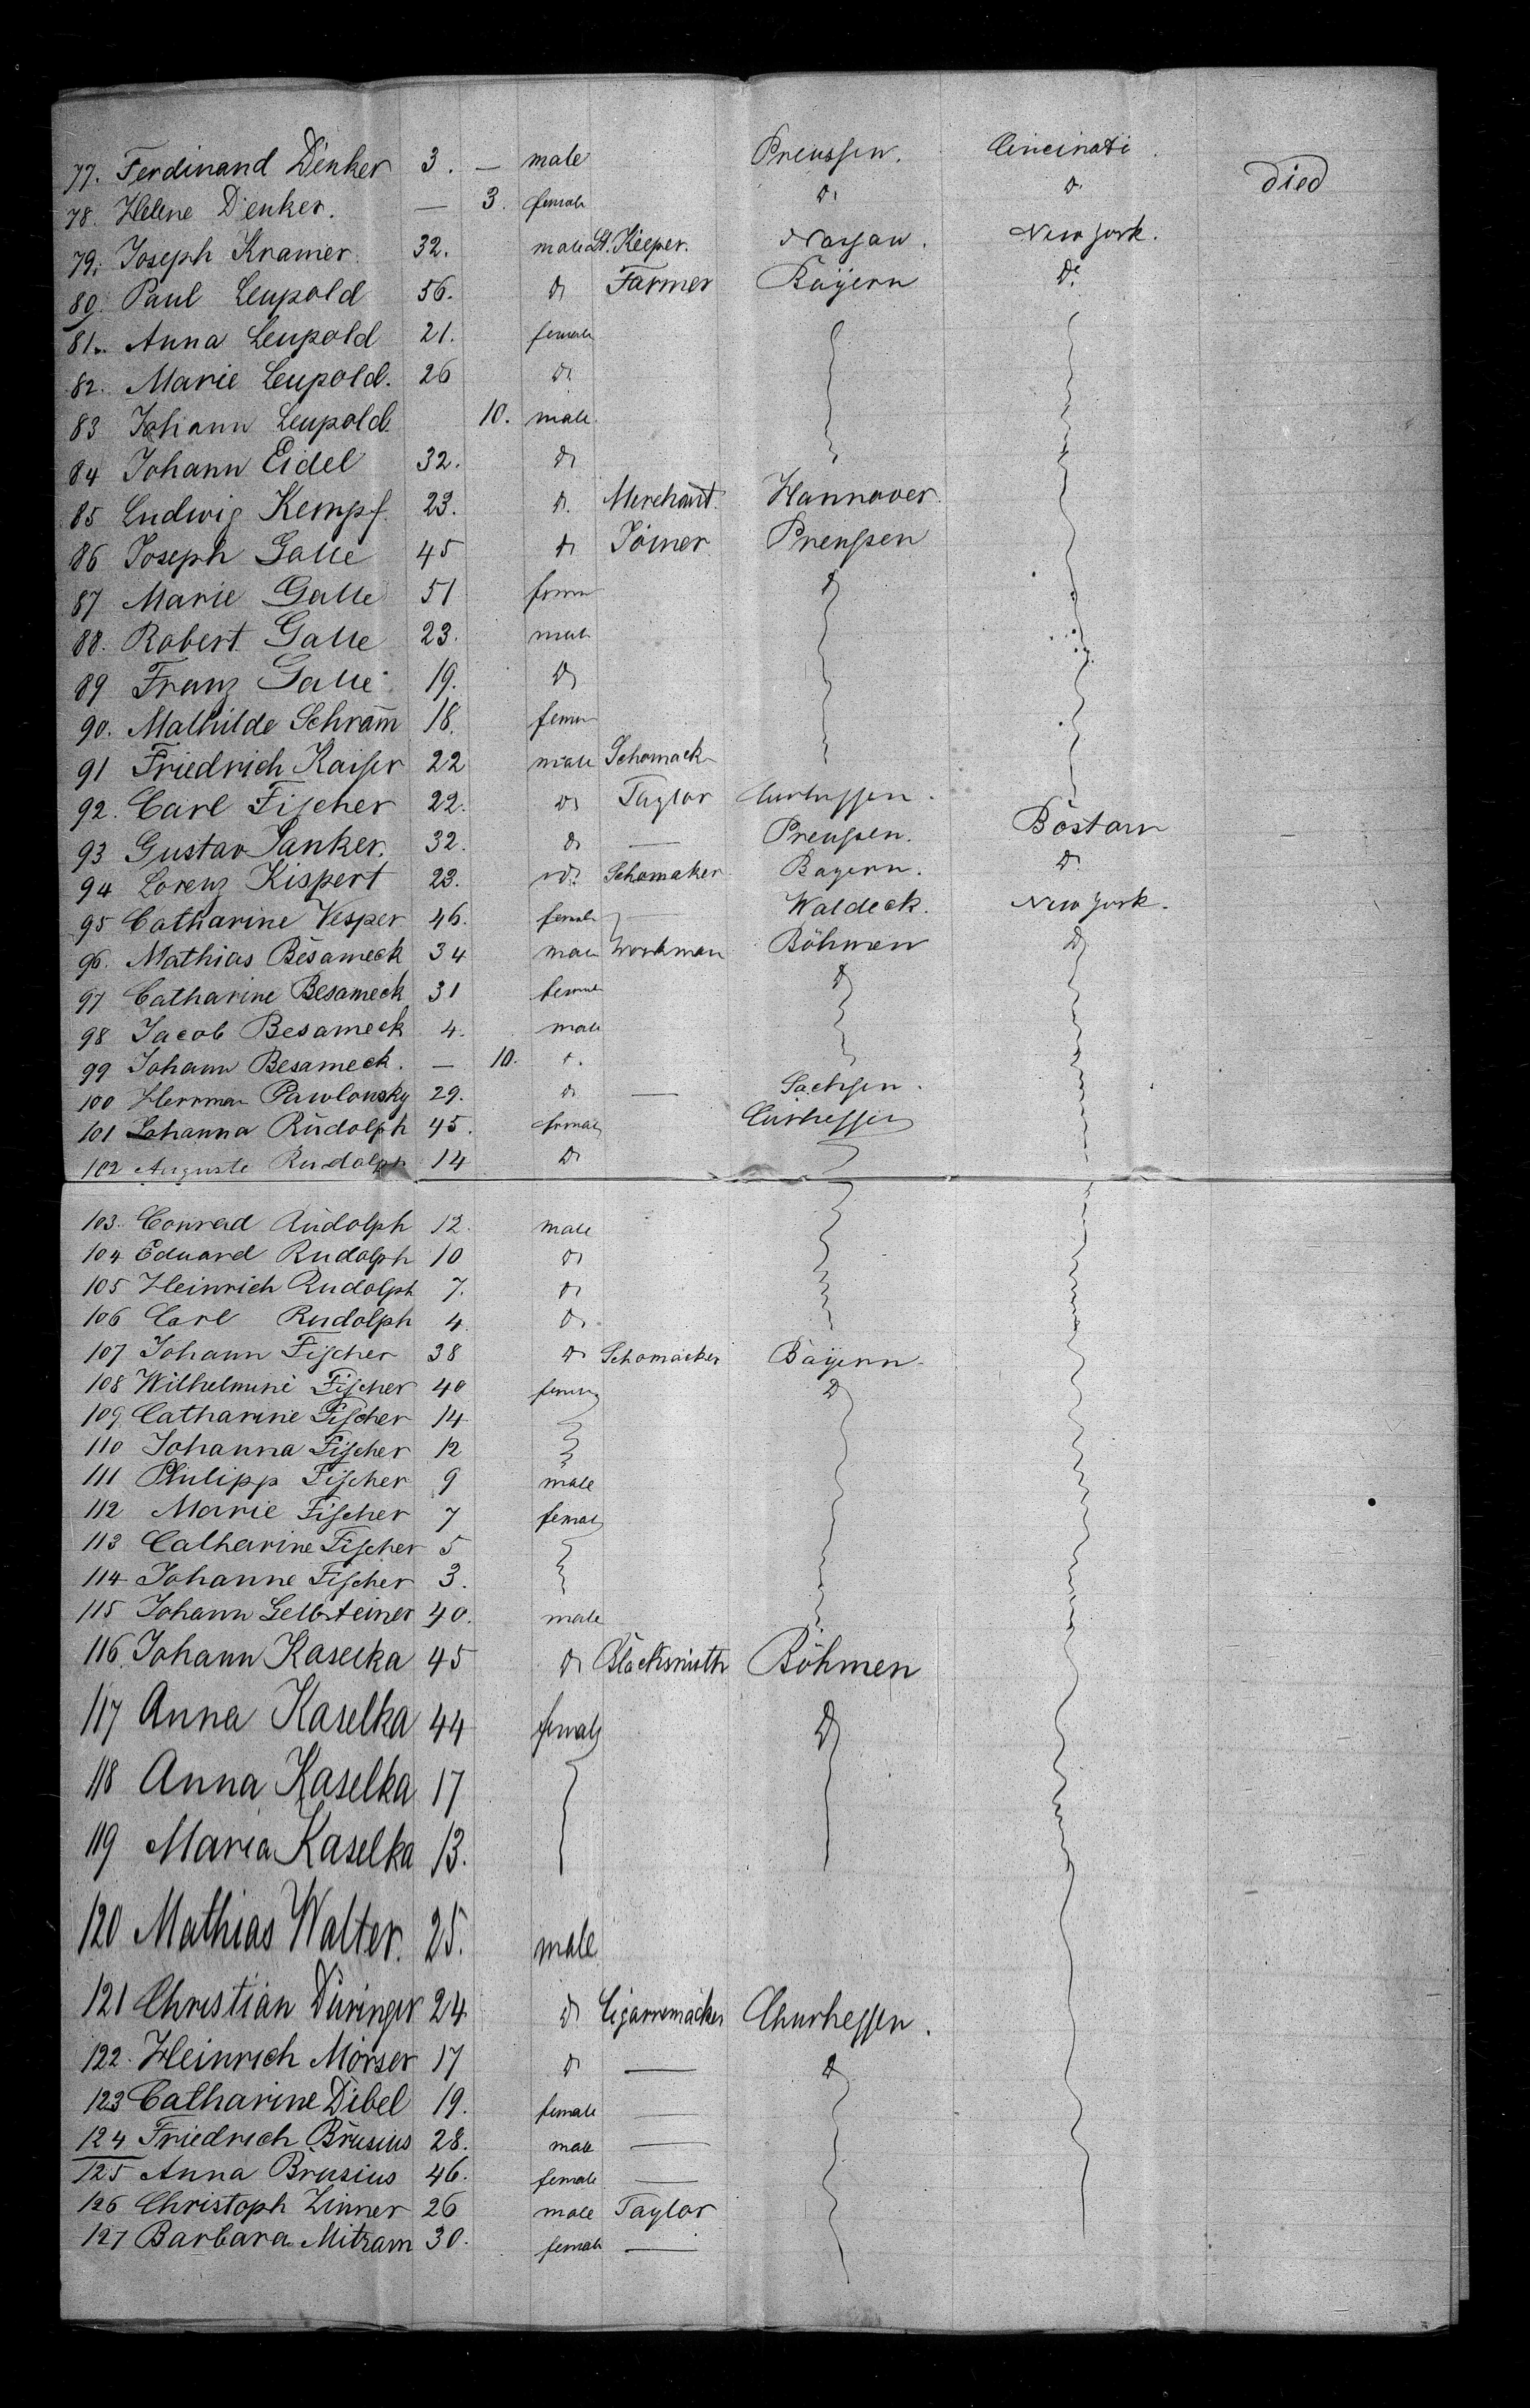 77. Ferdinand Denker 3. — male Preussen. Cincinati
78. Helene Denker. — 3. female do do died
79. Joseph Kramer. 32. male St. Keeper. Nassau. New York.
80. Paul Leupold 56. do Farmer Bayern do
81. Anna Leupold 21. female
82. Marie Leupold. 26 do
83 Johann Leupold. 10. male.
84 Johann Eidel 32. do
85 Ludwig Kempf. 23. do Merchant. Hannover.
86 Joseph Galle 45 do Joiner Preussen
87 Marie Galle 51 female do
88. Robert Galle 23. male
89 Franz Galle 19. do
90. Mathilde Schram̄ 18. female
91 Friedrich Kaiser 22 male Schomack
92. Carl Fischer 22. do Taylor Curhessen.
93 Gustav Janker. 32. do — Preussen. Bostan
94 Lorenz Kispert 23. do Schomaker Bayern. do
95 Catharine Vesper 46. female — Waldeck. New York.
96. Mathias Besameck 34 male Workman Böhmen do
97 Catharine Besameck 31 female do
98 Jacob Besameck 4. male
99 Johann Besameck. — 10.
100 Herrman Pawlonsky 29. do — Sachsen.
101 Johanna Rudolph 45. female Curhessen
102 Auguste Rudolph 14 do
103. Conrad Rudolph 12. male
104 Eduard Rudolph 10 do
105 Heinrich Rudolph 7. do
106 Carl Rudolph 4 do
107 Johann Fischer 38 do Schomacker Bayern
108 Wilhelmine Fischer 40 female do
109. Catharine Fischer 14
110 Johanna Fischer 12
111 Philipp Fischer 9 male
112 Marie Fischer 7 female
113 Catharine Fischer 5
114 Johanne Fischer 3.
115 Johann Gelbsteiner 40. male
116 Johann Kaselka 45 do Blacksmith Böhmen
117 Anna Kaselka 44 female do
118 Anna Kaselka 17
119 Maria Kaselka 13.
120 Mathias Walter. 25. male
121 Christian Düringer 24 do Cigarremacker Churhessen.
122. Heinrich Mörser 17 do — do
123 Catharine Dibel 19. female —
124 Friedrich Brusius 28. male —
125 Anna Brusius 46. female —
126 Christoph Zinner 26 male Taylor
127 Barbara Mitzam 30. female —